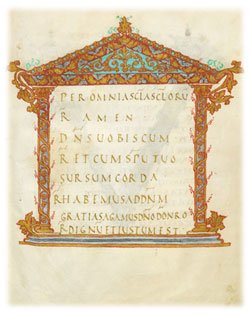 PER OMNIA SCLA SCLORU
R AMEN
DNS UOBISCUM
R ET CUM SPU TUO
SURSUM CORDA
R HABEMUS AD DNM
GRATIAS AGAMUS DNO DO NRO
R DIGNU ET IUSTUM EST